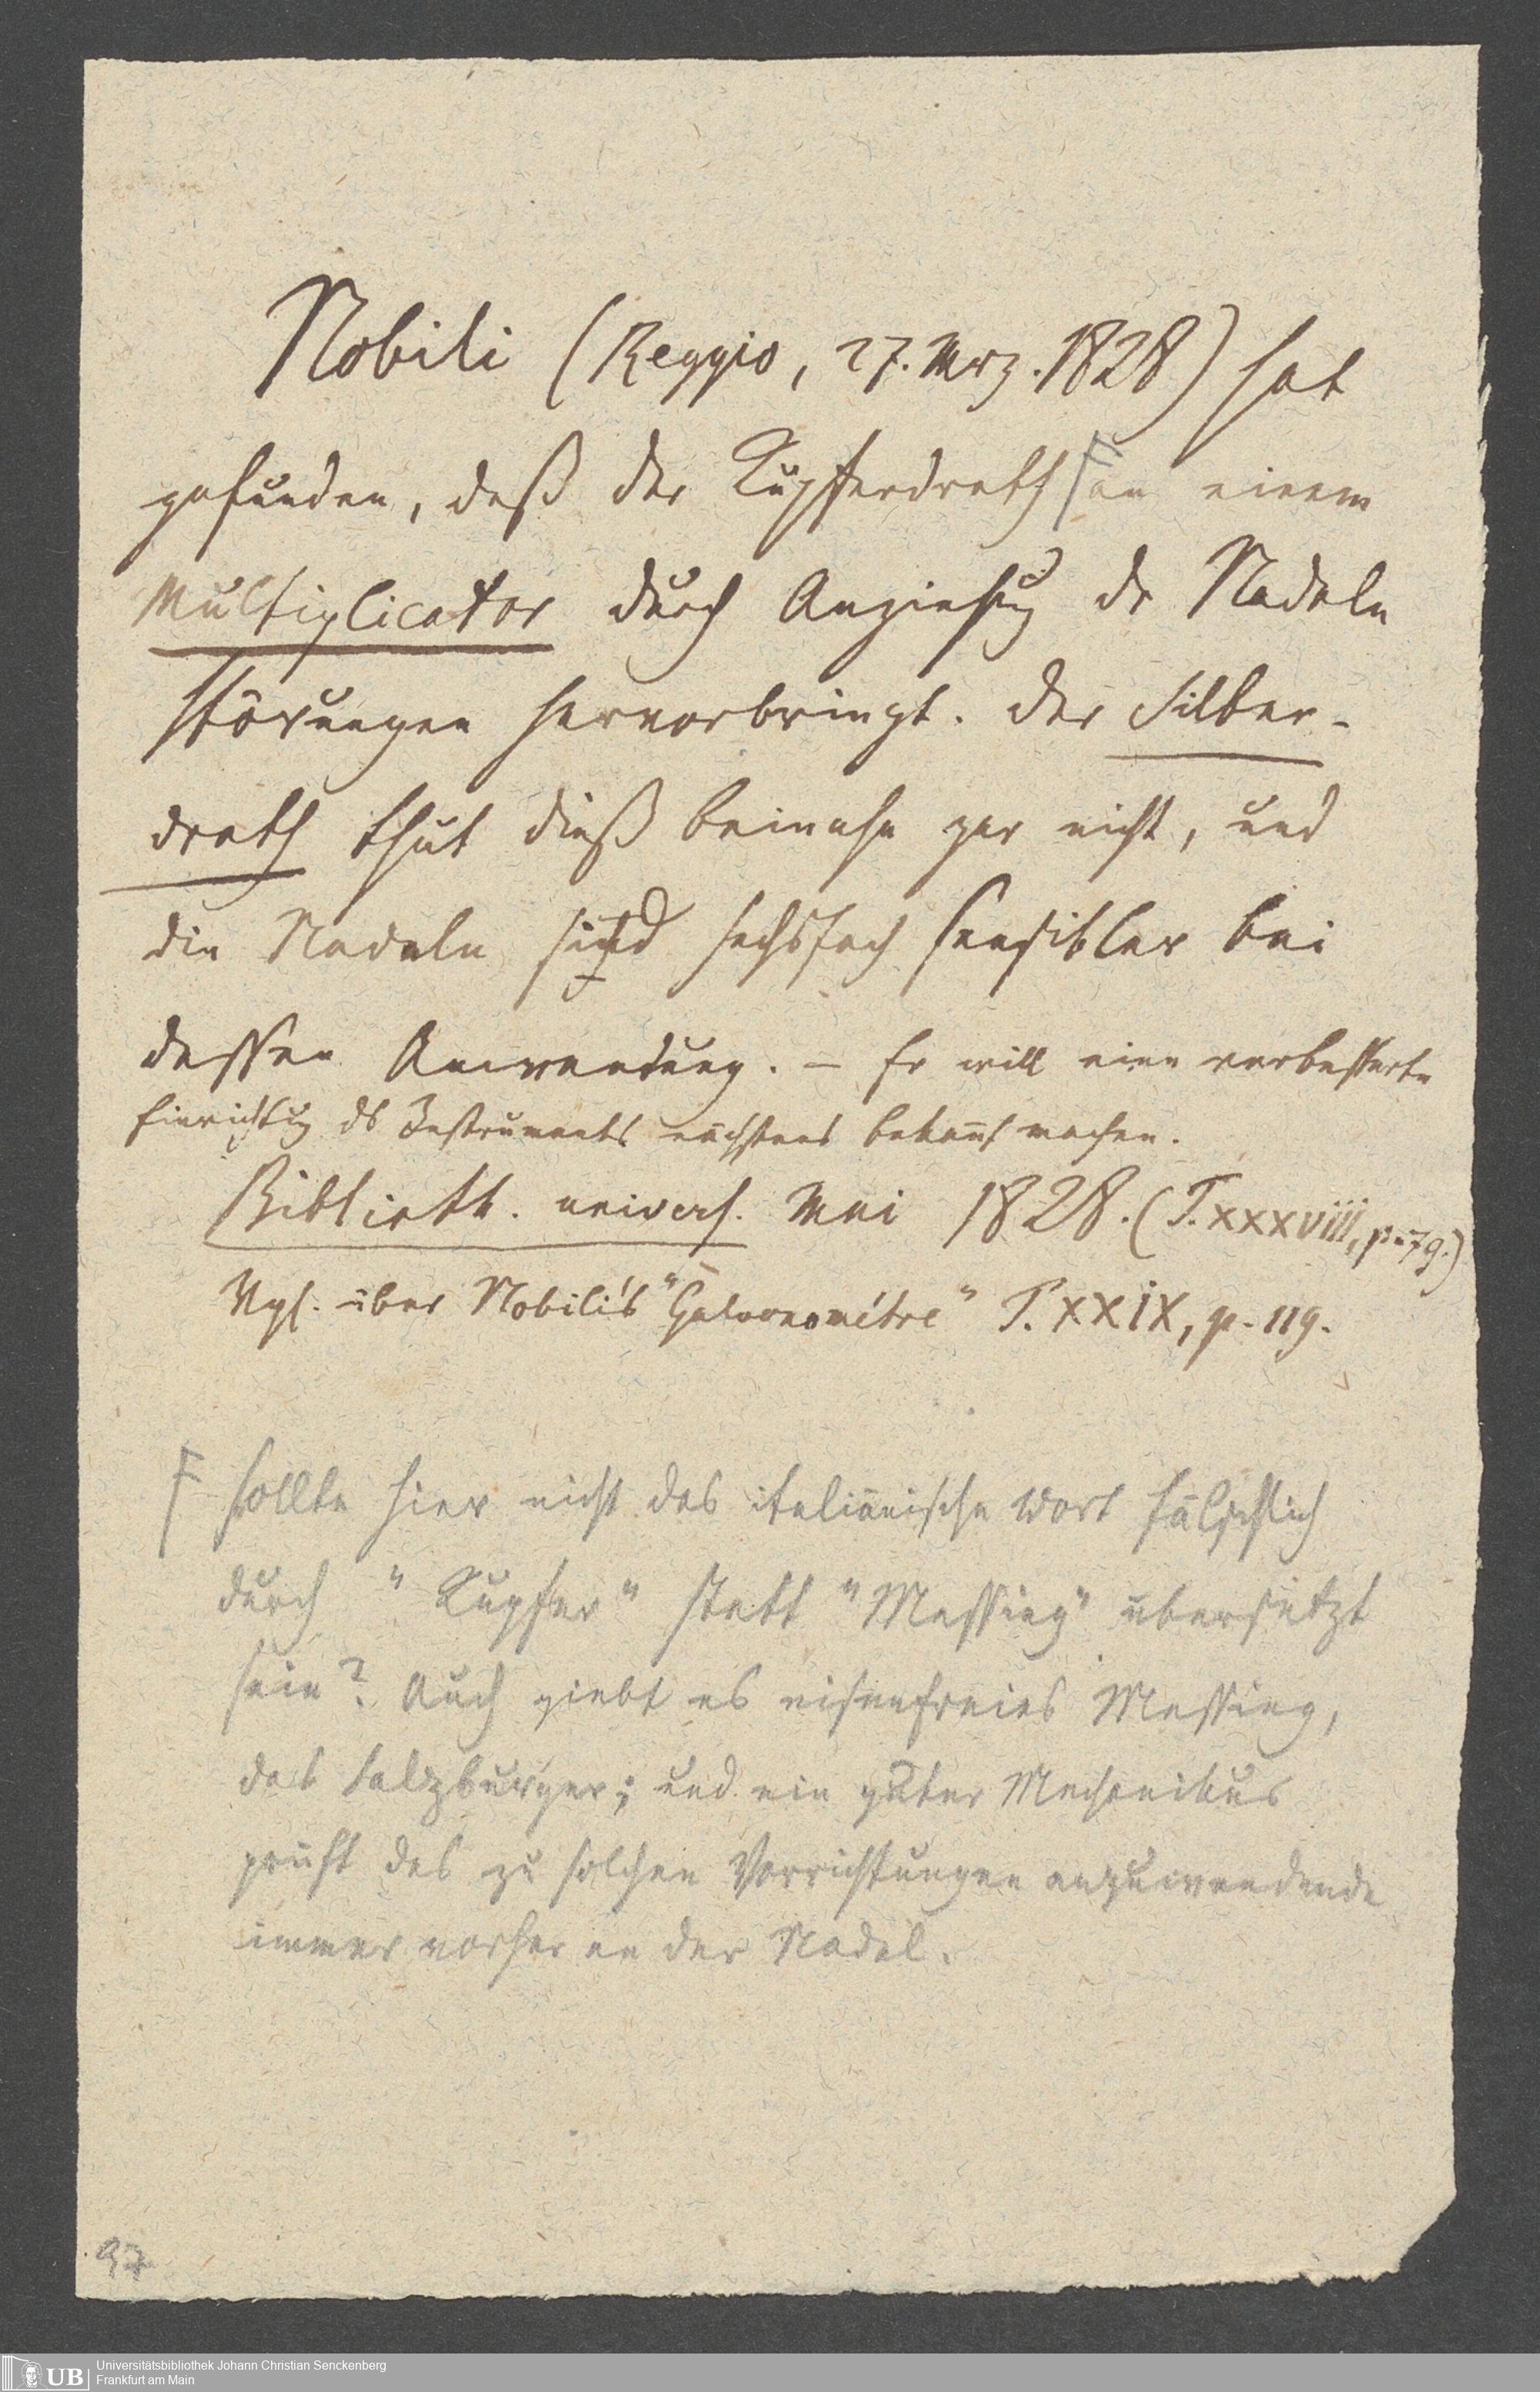 Nobili (Reggio, 27. Mrz. 1828) hat
gefunden, daß der Kupferdrath an einem
Multiplicator durch Anziehug dr Nadeln
Störungen hervorbringt. Der Silber-
drath thut dieß beinahe gar nicht, und
die Nadeln sind sechsfach sensibler bei
dessen Anwendung. – Er will eine verbesserte
Einrichtug ds Instruments nächstens bekannt machen.
Biblioth. univers. Mai 1828. (T. XXXVIII, p. 79.)
Vgl. über Nobili's "Galvanométre" T. XXIX, p. 119.
F Sollte hier nicht das italiänische Wort fälschlich
durch "Kupfer" statt "Messing" übersetzt
sein? Auch giebt es eisenfreies Messing,
das Salzburger; und ein guter Mechanikus
prüft das zu solchen Vorrichtungen anzuwendende
immer vorher an der Nadel.
97
UB Universitätsbibliothek Johann Christian Senckenberg
Frankfurt am Main